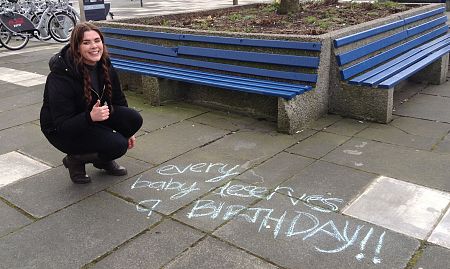 every
baby deserves
a BIRTHDAY!!